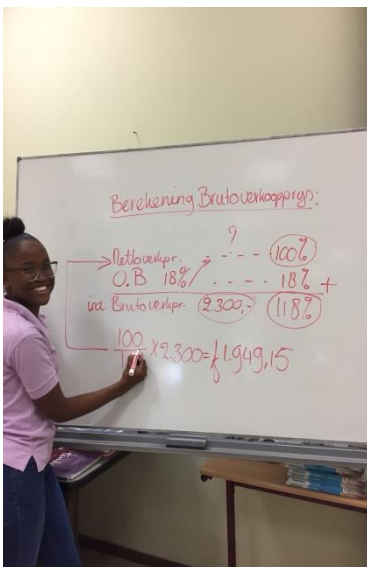 Berekening Brutoverkoopprys:
?
Nettoverkpr. - - - - 100%
O.B 18% - - - - 18% +
incl. Brutoverkpr. 2.300,- 118%
100
x 2.300 = f 1.949,15